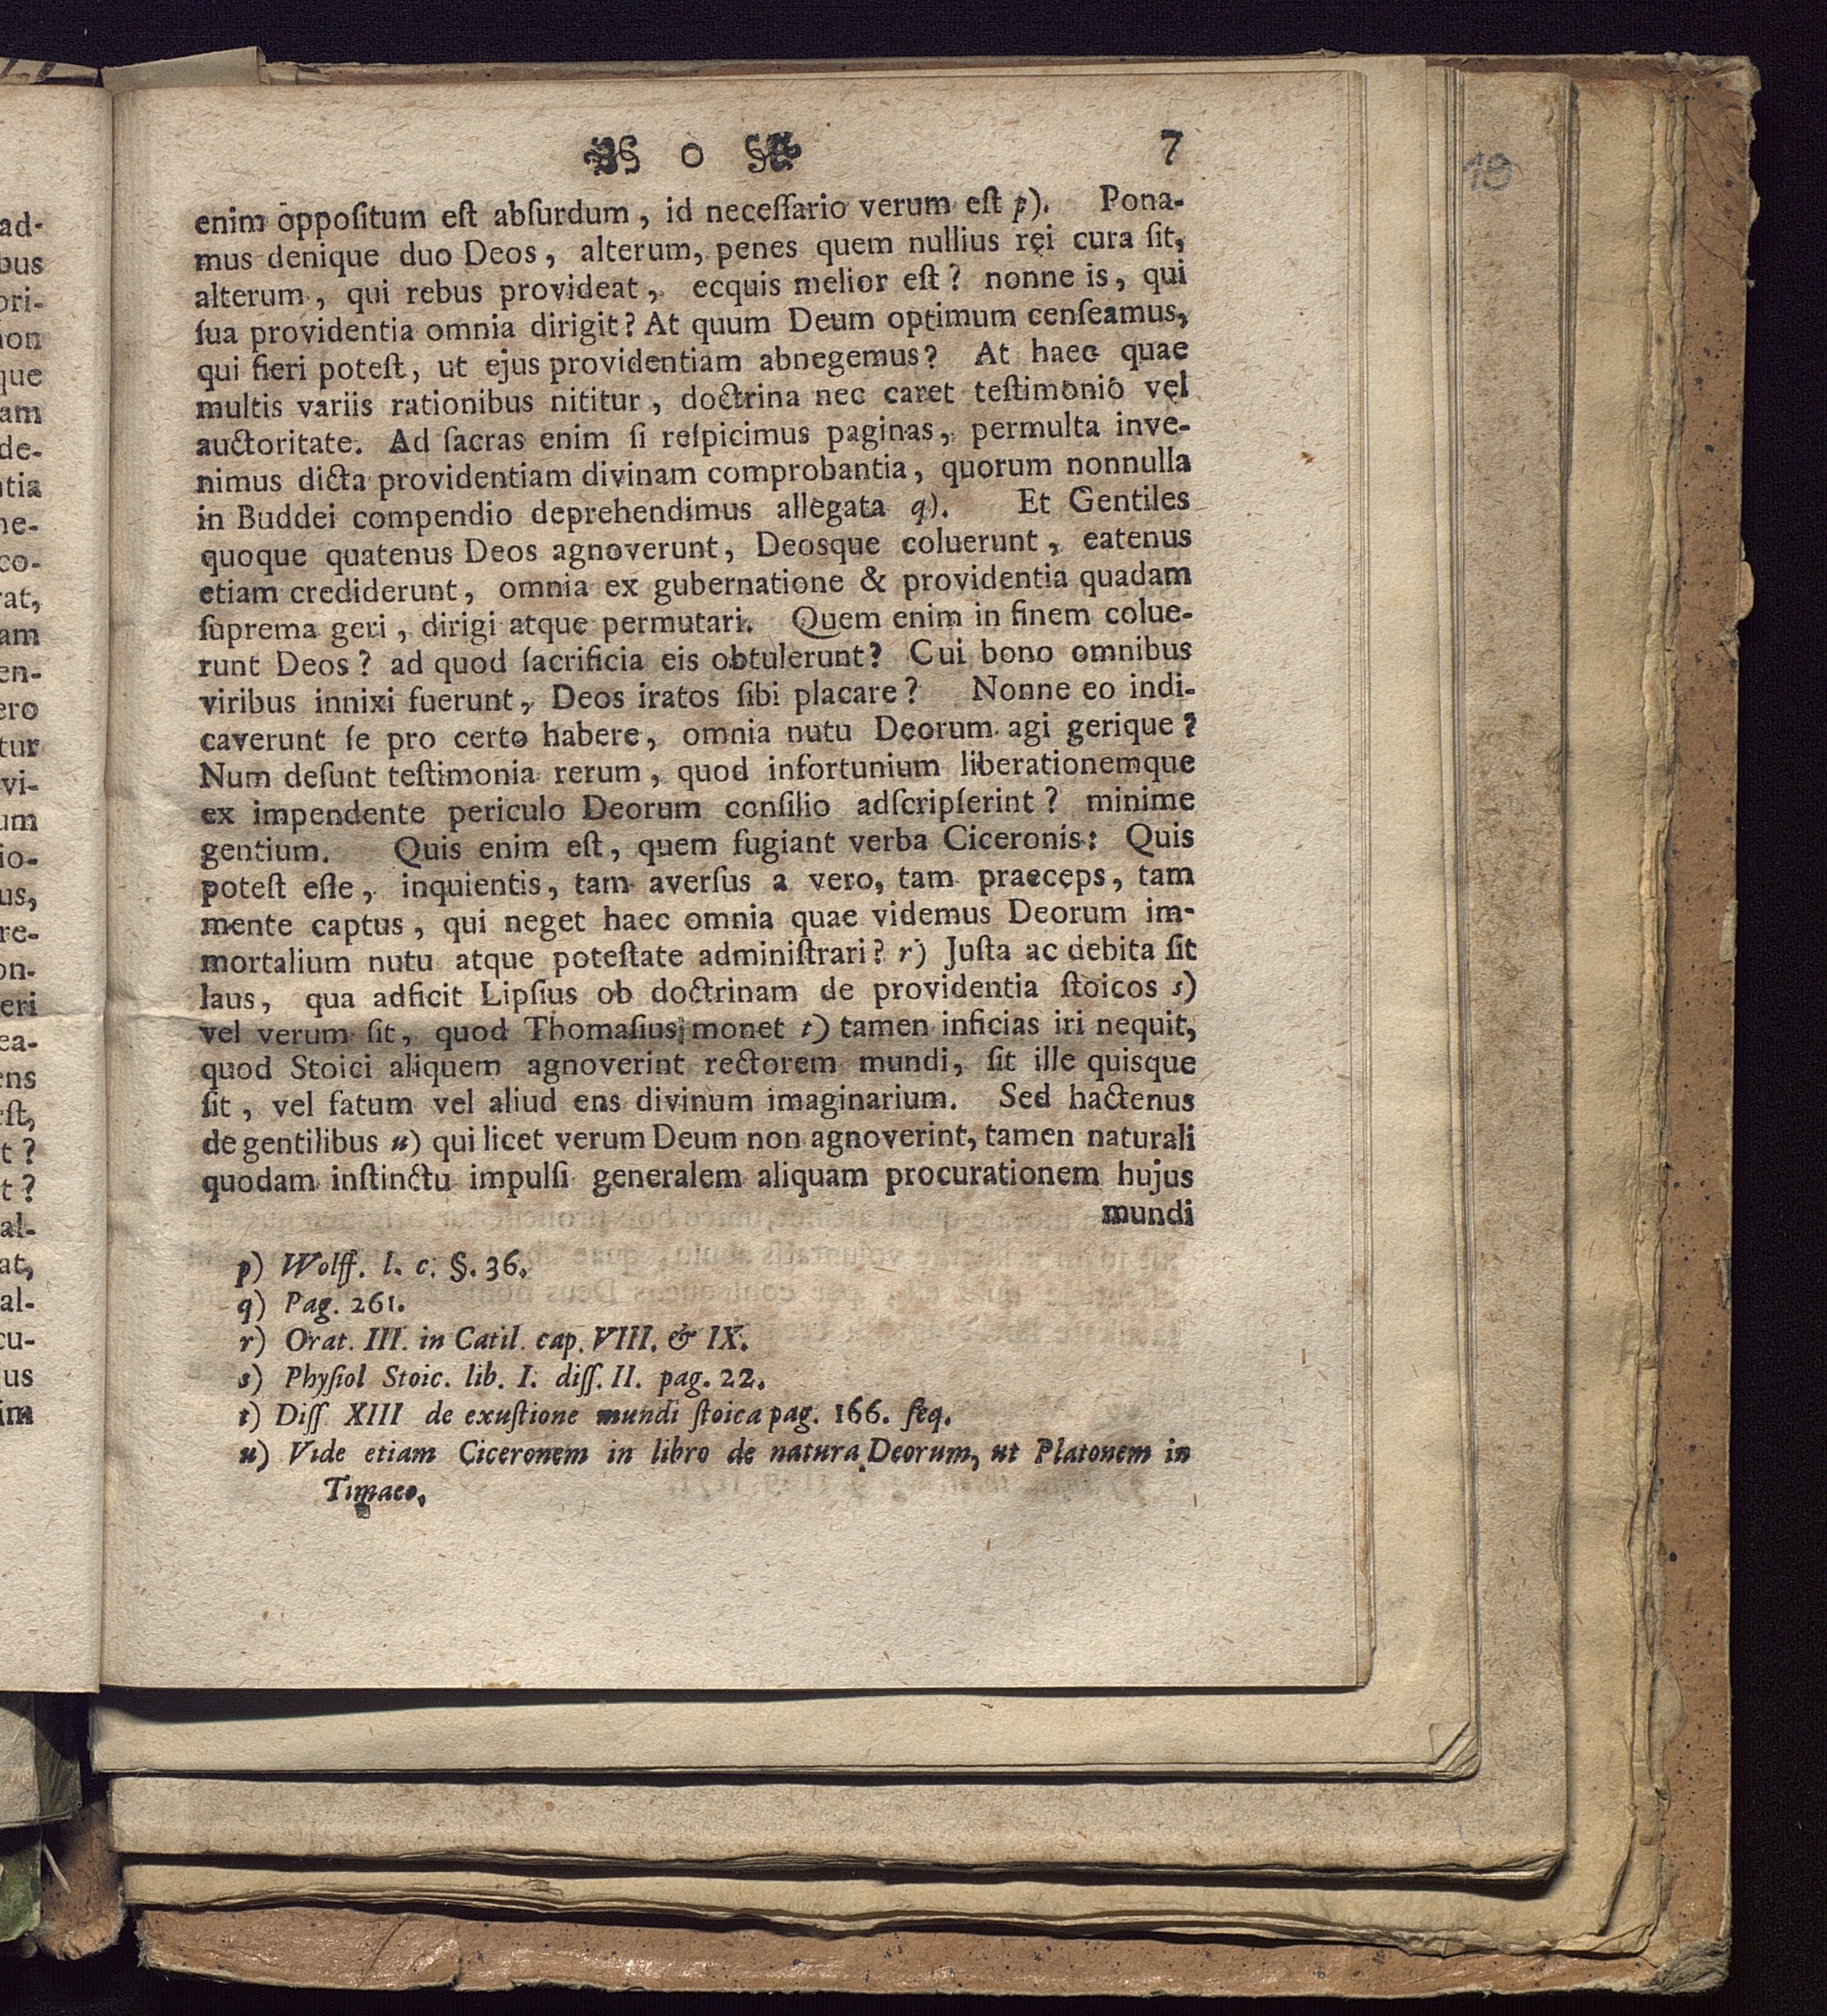 0 7
19
enim oppoſitum eſt abſurdum, id neceſſario verum eſt p). Pona-
mus denique duo Deos, alterum, penes quem nullius rei cura ſit,
alterum, qui rebus provideat, ecquis melior eſt? nonne is, qui
ſua providentia omnia dirigit? At quum Deum optimum cenſeamus,
qui fieri poteſt, ut ejus providentiam abnegemus? At haec quae
multis variis rationibus nititur, doctrina nec caret teſtimonio vel
auctoritate. Ad ſacras enim ſi reſpicimus paginas, permulta inve-
nimus dicta providentiam divinam comprobantia, quorum nonnulla
in Buddei compendio deprehendimus allegata q). Et Gentiles
quoque quatenus Deos agnoverunt, Deosque coluerunt, eatenus
etiam crediderunt, omnia ex gubernatione & providentia quadam
ſuprema geri, dirigi atque permutari. Quem enim in finem colue-
runt Deos? ad quod ſacrificia eis obtulerunt? Cui bono omnibus
viribus innixi fuerunt, Deos iratos ſibi placare? Nonne eo indi-
caverunt ſe pro certo habere, omnia nutu Deorum agi gerique?
Num deſunt teſtimonia rerum, quod infortunium liberationemque
ex impendente periculo Deorum conſilio adſcripſerint? minime
gentium. Quis enim eſt, quem fugiant verba Ciceronis: Quis
poteſt eſſe, inquientis, tam averſus a vero, tam praeceps, tam
mente captus, qui neget haec omnia quae videmus Deorum im-
mortalium nutu atque poteſtate adminiſtrari? r) Juſta ac debita ſit
laus, qua adficit Lipſius ob doctrinam de providentia ſtoicos s)
vel verum ſit, quod Thomaſius monet t) tamen inficias iri nequit,
quod Stoici aliquem agnoverint rectorem mundi, ſit ille quisque
ſit, vel fatum vel aliud ens divinum imaginarium. Sed hactenus
de gentilibus u) qui licet verum Deum non agnoverint, tamen naturali
quodam inſtinctu impulſi generalem aliquam procurationem hujus
mundi
p) Wolff. l. c. §. 36.
q) Pag. 261.
r) Orat. III. in Catil. cap. VIII. & IX.
s) Phyſiol Stoic. lib. I. diſſ. II. pag. 22.
t) Diſſ XIII de exuſtione mundi ſtoica pag. 166. ſeq.
u) Vide etiam Ciceronem in libro de natura Deorum, ut Platonem in
Timaeo.